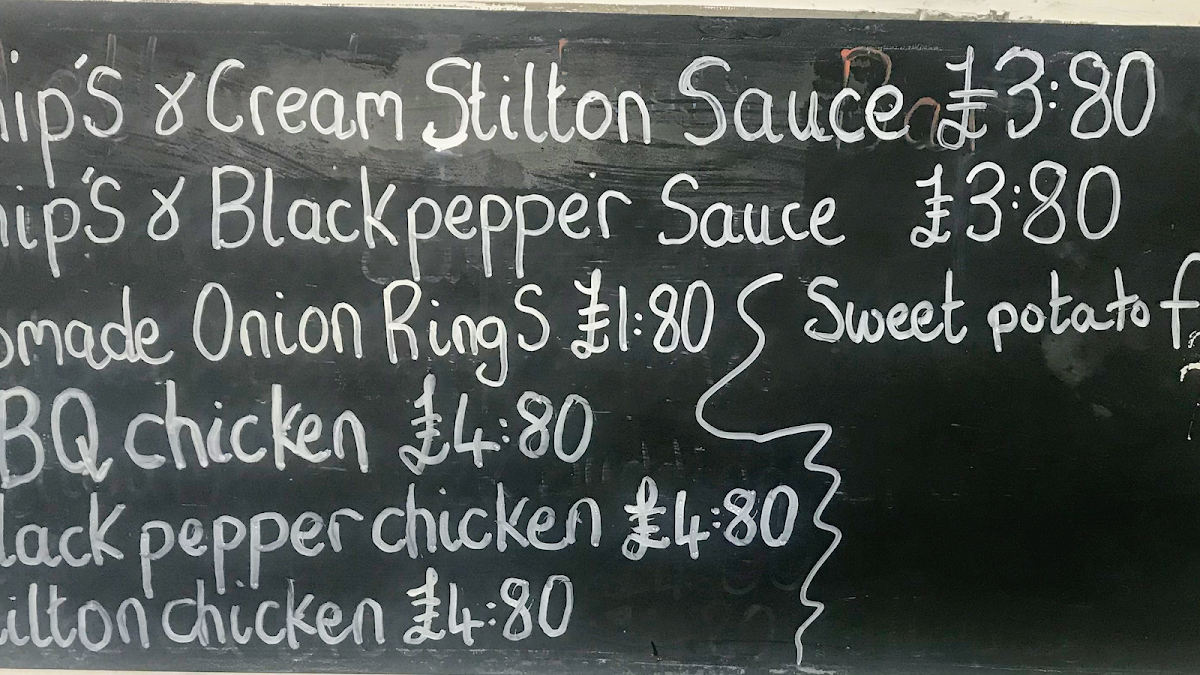 hip's & Cream Stilton Sauce £3:80
hip's & Black pepper Sauce £3:80
omade Onion Rings £1:80
Sweet potato f
BQ chicken £4:80
lack pepper chicken £4:80
ilton chicken £4:80